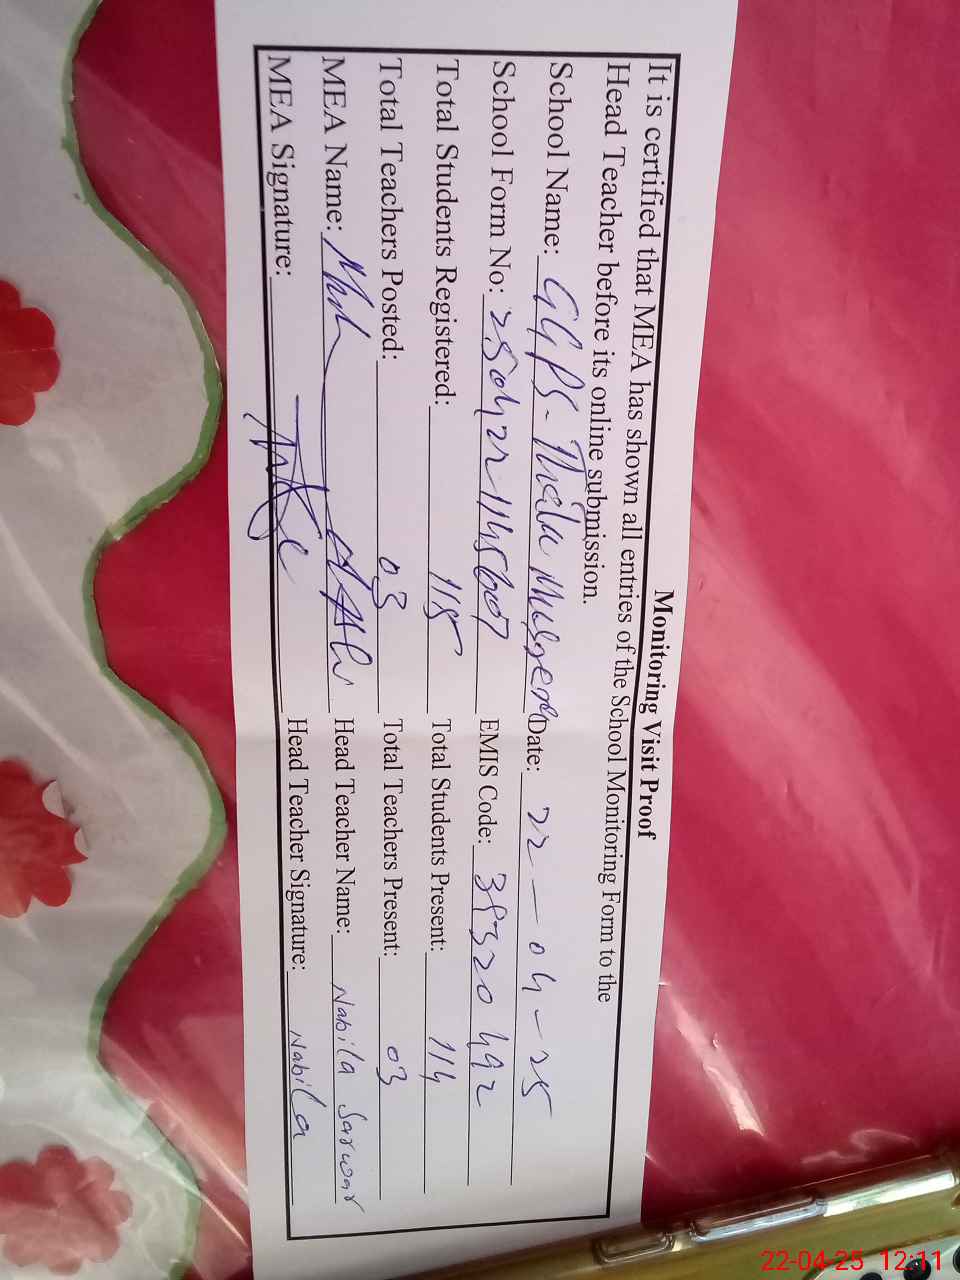 Monitoring Visit Proof
It is certified that MEA has shown all entries of the School Monitoring Form to the
Head Teacher before its online submission.
School Name: GGPS. Date: 22-04-25
School Form No: EMIS Code:
Total Students Registered: 115 Total Students Present: 114
Total Teachers Posted: 03 Total Teachers Present: 03
MEA Name: Head Teacher Name: Nabila Sarwar
MEA Signature: Head Teacher Signature: Nabila
22-04-25 12:11